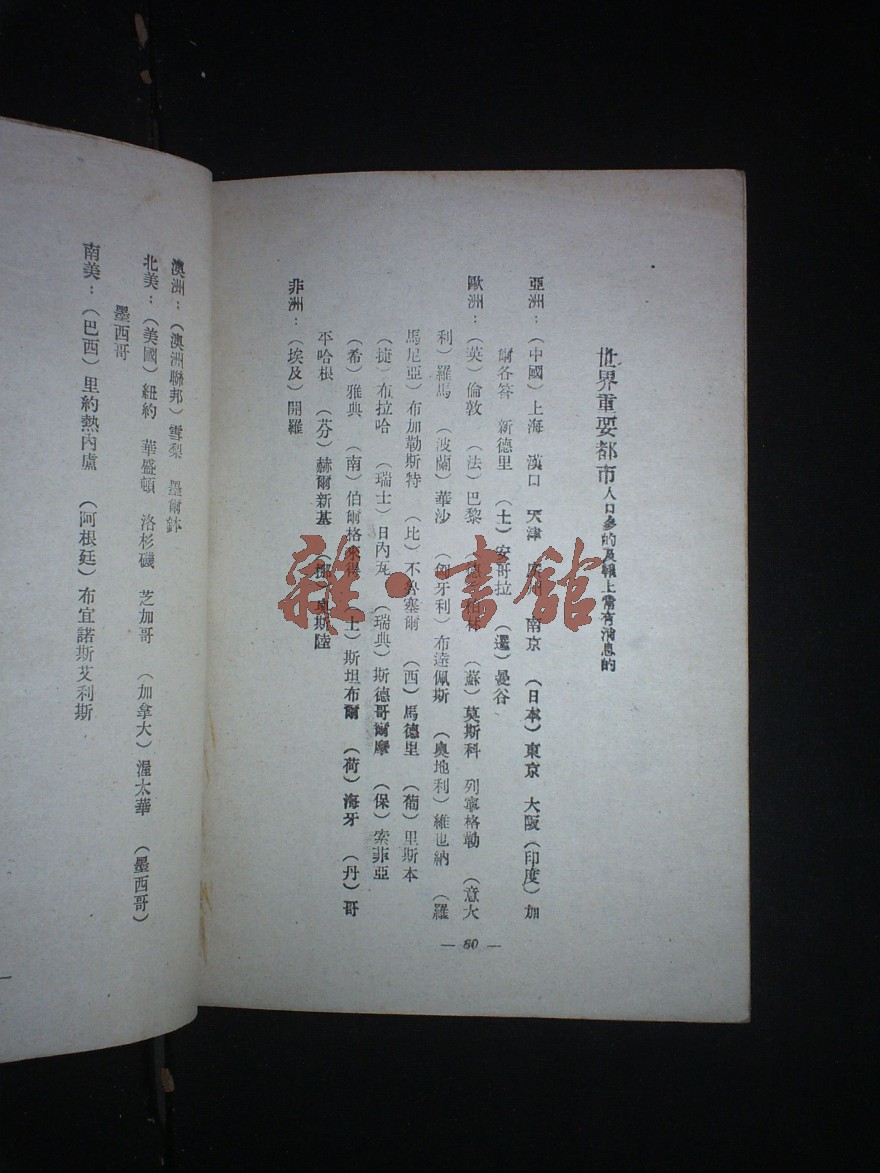 世界重要都市人口多的及報上常有消息的
亞洲：（中國）上海 漢口 天津 廣州 南京 （日本）東京 大阪（印度）加
爾各答 新德里 （土）安哥拉 （暹）曼谷
歐洲：（英）倫敦 （法）巴黎 柏林 （蘇）莫斯科 列寧格勒 （意大
利）羅馬 （波蘭）華沙 （匈牙利）布達佩斯 （奥地利）維也納 （羅
馬尼亞）布加勒斯特 （比）不魯塞爾 （西）馬德里 （葡）里斯本
（捷）布拉哈 （瑞士）日內瓦 （瑞典）斯德哥爾摩 （保）索菲亞
（希）雅典 （南）伯爾格來得 （土）斯坦布爾 （荷）海牙 （丹）哥
平哈根 （芬）赫爾新基 （挪）奥斯陸
非洲：（埃及）開羅
— 60 —
澳洲：（澳洲聯邦）雪梨 墨爾鉢
北美：（美國）紐約 華盛頓 洛杉磯 芝加哥 （加拿大）渥太華 （墨西哥）
墨西哥
南美：（巴西）里約熱內盧 （阿根廷）布宜諾斯艾利斯
雜·書館